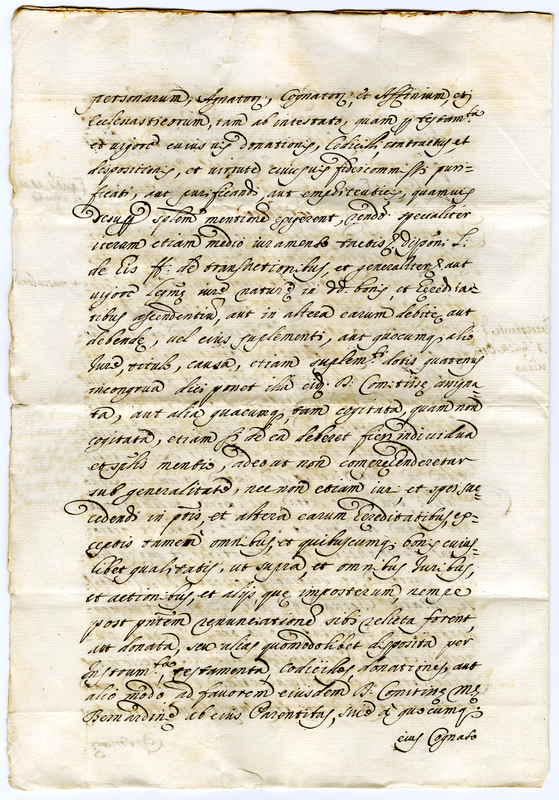 personarum, Agnator, Cognator, et Affinium, et
Ecclesiasticorum, tam ab intestato, quam ex testam.to
et vigore cuius vis donationis, Codicilli contractus et
dispositionis, et virtute cuiusvis fideicommissi puri-
ficati, aut purificandi, aut emphiteuticis, quamvis
Desuper mentione exigerent, specialiter
iterum etiam medio iuramento tactis
de eis ff: de transactionibus, et generaliter aut
vigore legis iure nature in bonis, et heredita-
tibus ascendentium, aut in altera earum debite, aut
debende, vel eius suplementi, aut quocumq alio
Jure, titulo, causa, etiam suplem.ti dotis quatenus
incongrua dici posset illa D. Comitisse assigna-
ta, aut alia quacumq, tam cogitata, quam non
cogitata, etiam si de ea deberet fieri individua
et mentio, adeo ut non comprehenderetur
sub generalitate, nec non etiam iur. et spei suc-
cedendi in et altera earum hereditatibus ex-
ceptis tamen omnibus, et quibuscumq bonis cuius-
libet qualitatis, ut supra, et omnibus Juribus,
et actionibus, et alijs que imposterum, nempe
post renunciatione sibi relicta forent
aut donata, seu alias quomodolibet disposita per
Instrum.ta testamenta, Codicillos, donationes, aut
alio modo ad favorem eiusdem D. Comitisse
Bernardine ab eius Parentibus, sive a quocumq
eius Cognato